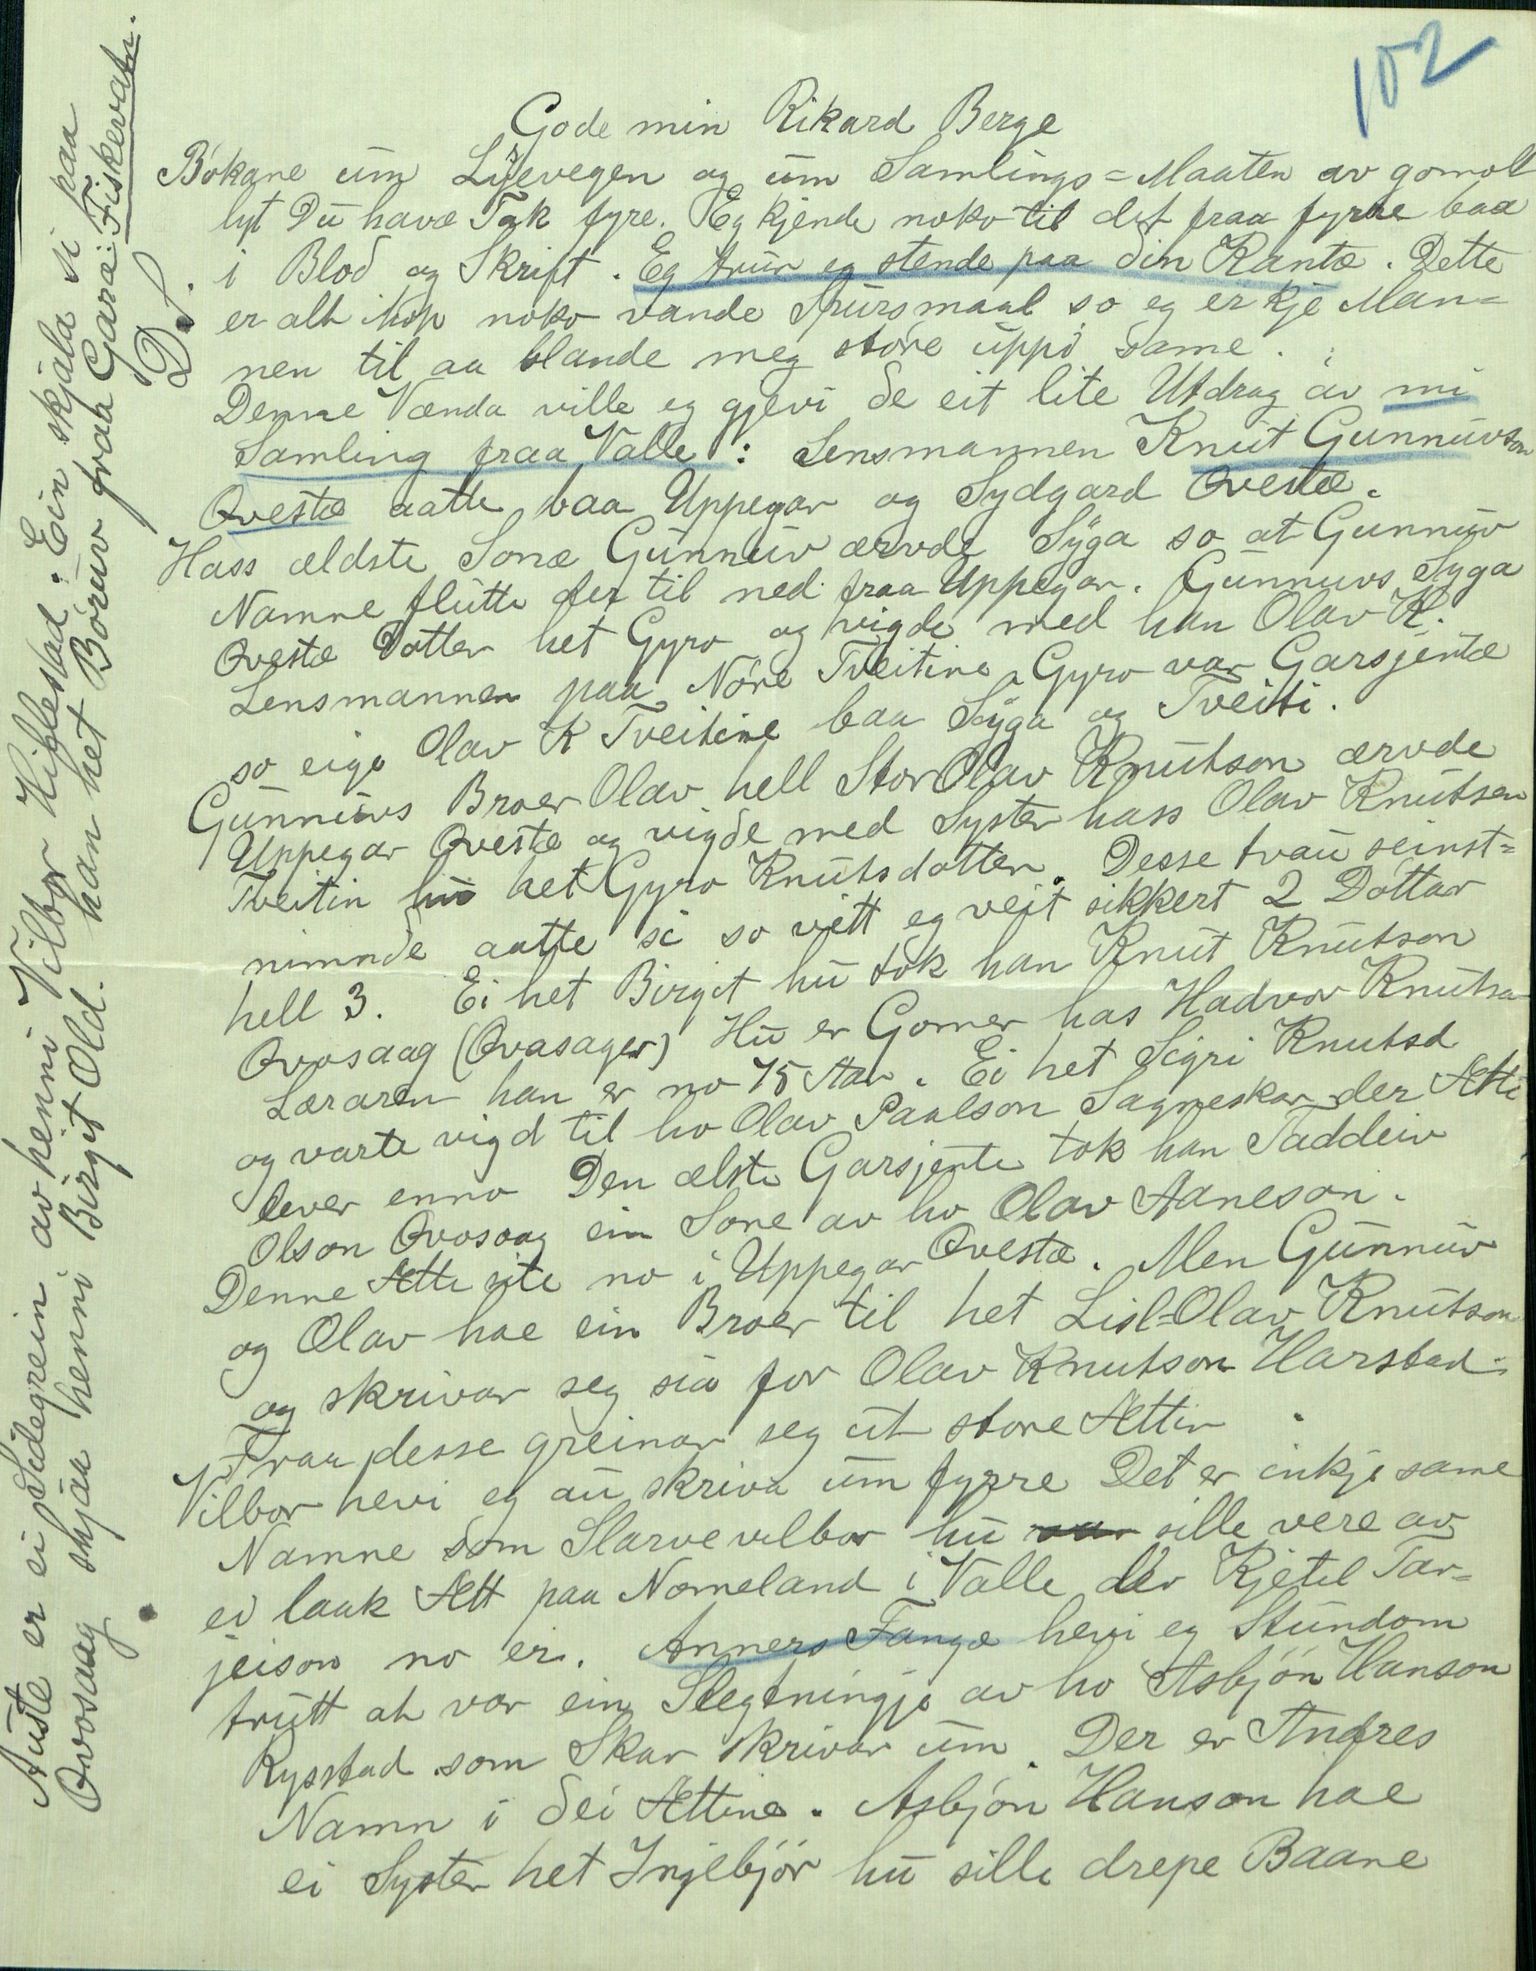 102
Gode min Rikard Berge
Bókane um Lysevegen og um Samlings=Maaten av gomol
lyt Du have Tak fyre. Eg kjende noko til det fraa fyrre baa
i Blod og Skrift. Eg trur eg stende paa din Kante. Dette
er alt ihop noko vande Spursmaal so eg er kje Man=
nen til aa blande meg store uppi same.
Denne Vænda ville eg gjevi de eit lite Utdrag av mi
Samling fraa Valle: Lensmannen Knut Gunnuvson
Qvestæ aatte baa Uppegar og Sydgard Qvestæ.
Hass ældste Sonæ Gunnuv ærvde Syga so at Gunnuv
Namne flutte der til ned fraa Uppegar. Gunnuvs Syga
Qvestæ Dotter het Gyro og vigde med han Olav K.
Lensmannen paa Nóre Tveitine. Gyro var Garsjentæ
so eige Olav K Tveitine baa Syga og Tveiti.
Gunnuvs Broer Olav hell StorOlav Knutson ærvde
Uppegar Qvestæ og vigde med Syster hass Olav Knutsen
Tveitin hu het Gyro Knutsdotter. Desse tvau seinst=
nimnde aatte si so vitt eg veit sikkert 2 Dóttar
hell 3. Ei het Birgit hu tok han Knut Knutson
Ovosaag (Ovasager) Hu er Gomer has Hadvor Knutsa
Læraren han er no 75 Aar. Ei het Sigri Knutsd
og varte vigd til ho Olav Paalson Sagneskar der Ætti
lever enno Den ælste Garsjente tok han Taddeiv
Olson Ovosaag ein Sone av ho Olav Aaneson.
Denne Ætte site no i Uppegar Qvestæ. Men Gunnuv
og Olav hae ein Broer til het Lisl=Olav Knutson
og skrivar seg sia for Olav Knutson Harstad.
Fraa desse greinar seg ut store Ættir
Vilbor hevi eg au skriva um fyrre Det er inkje same
Namne som Slarvevilbor hu sille vere av
ei laak Ætt paa Nomeland i Valle der Kjetil Tar=
jeison no er. Anners Fange hevi eg Stundom
trutt at var ein Slegtningje av ho Asbjón Hanson
Rysstad som Skar skrivar um. Der er Andres
Namn i dei Ættine. Asbjón Hanson hae
ei Syster het Ingebjór hu sille drepe Baane
Auste er ei Sidegrein av henni Vilbor Hiflestad: Ein skjala si paa
Ovosaag skjaa henni Birgit Old. han het Bóruv fraa Garæ: Fiskevatn.
D. S.